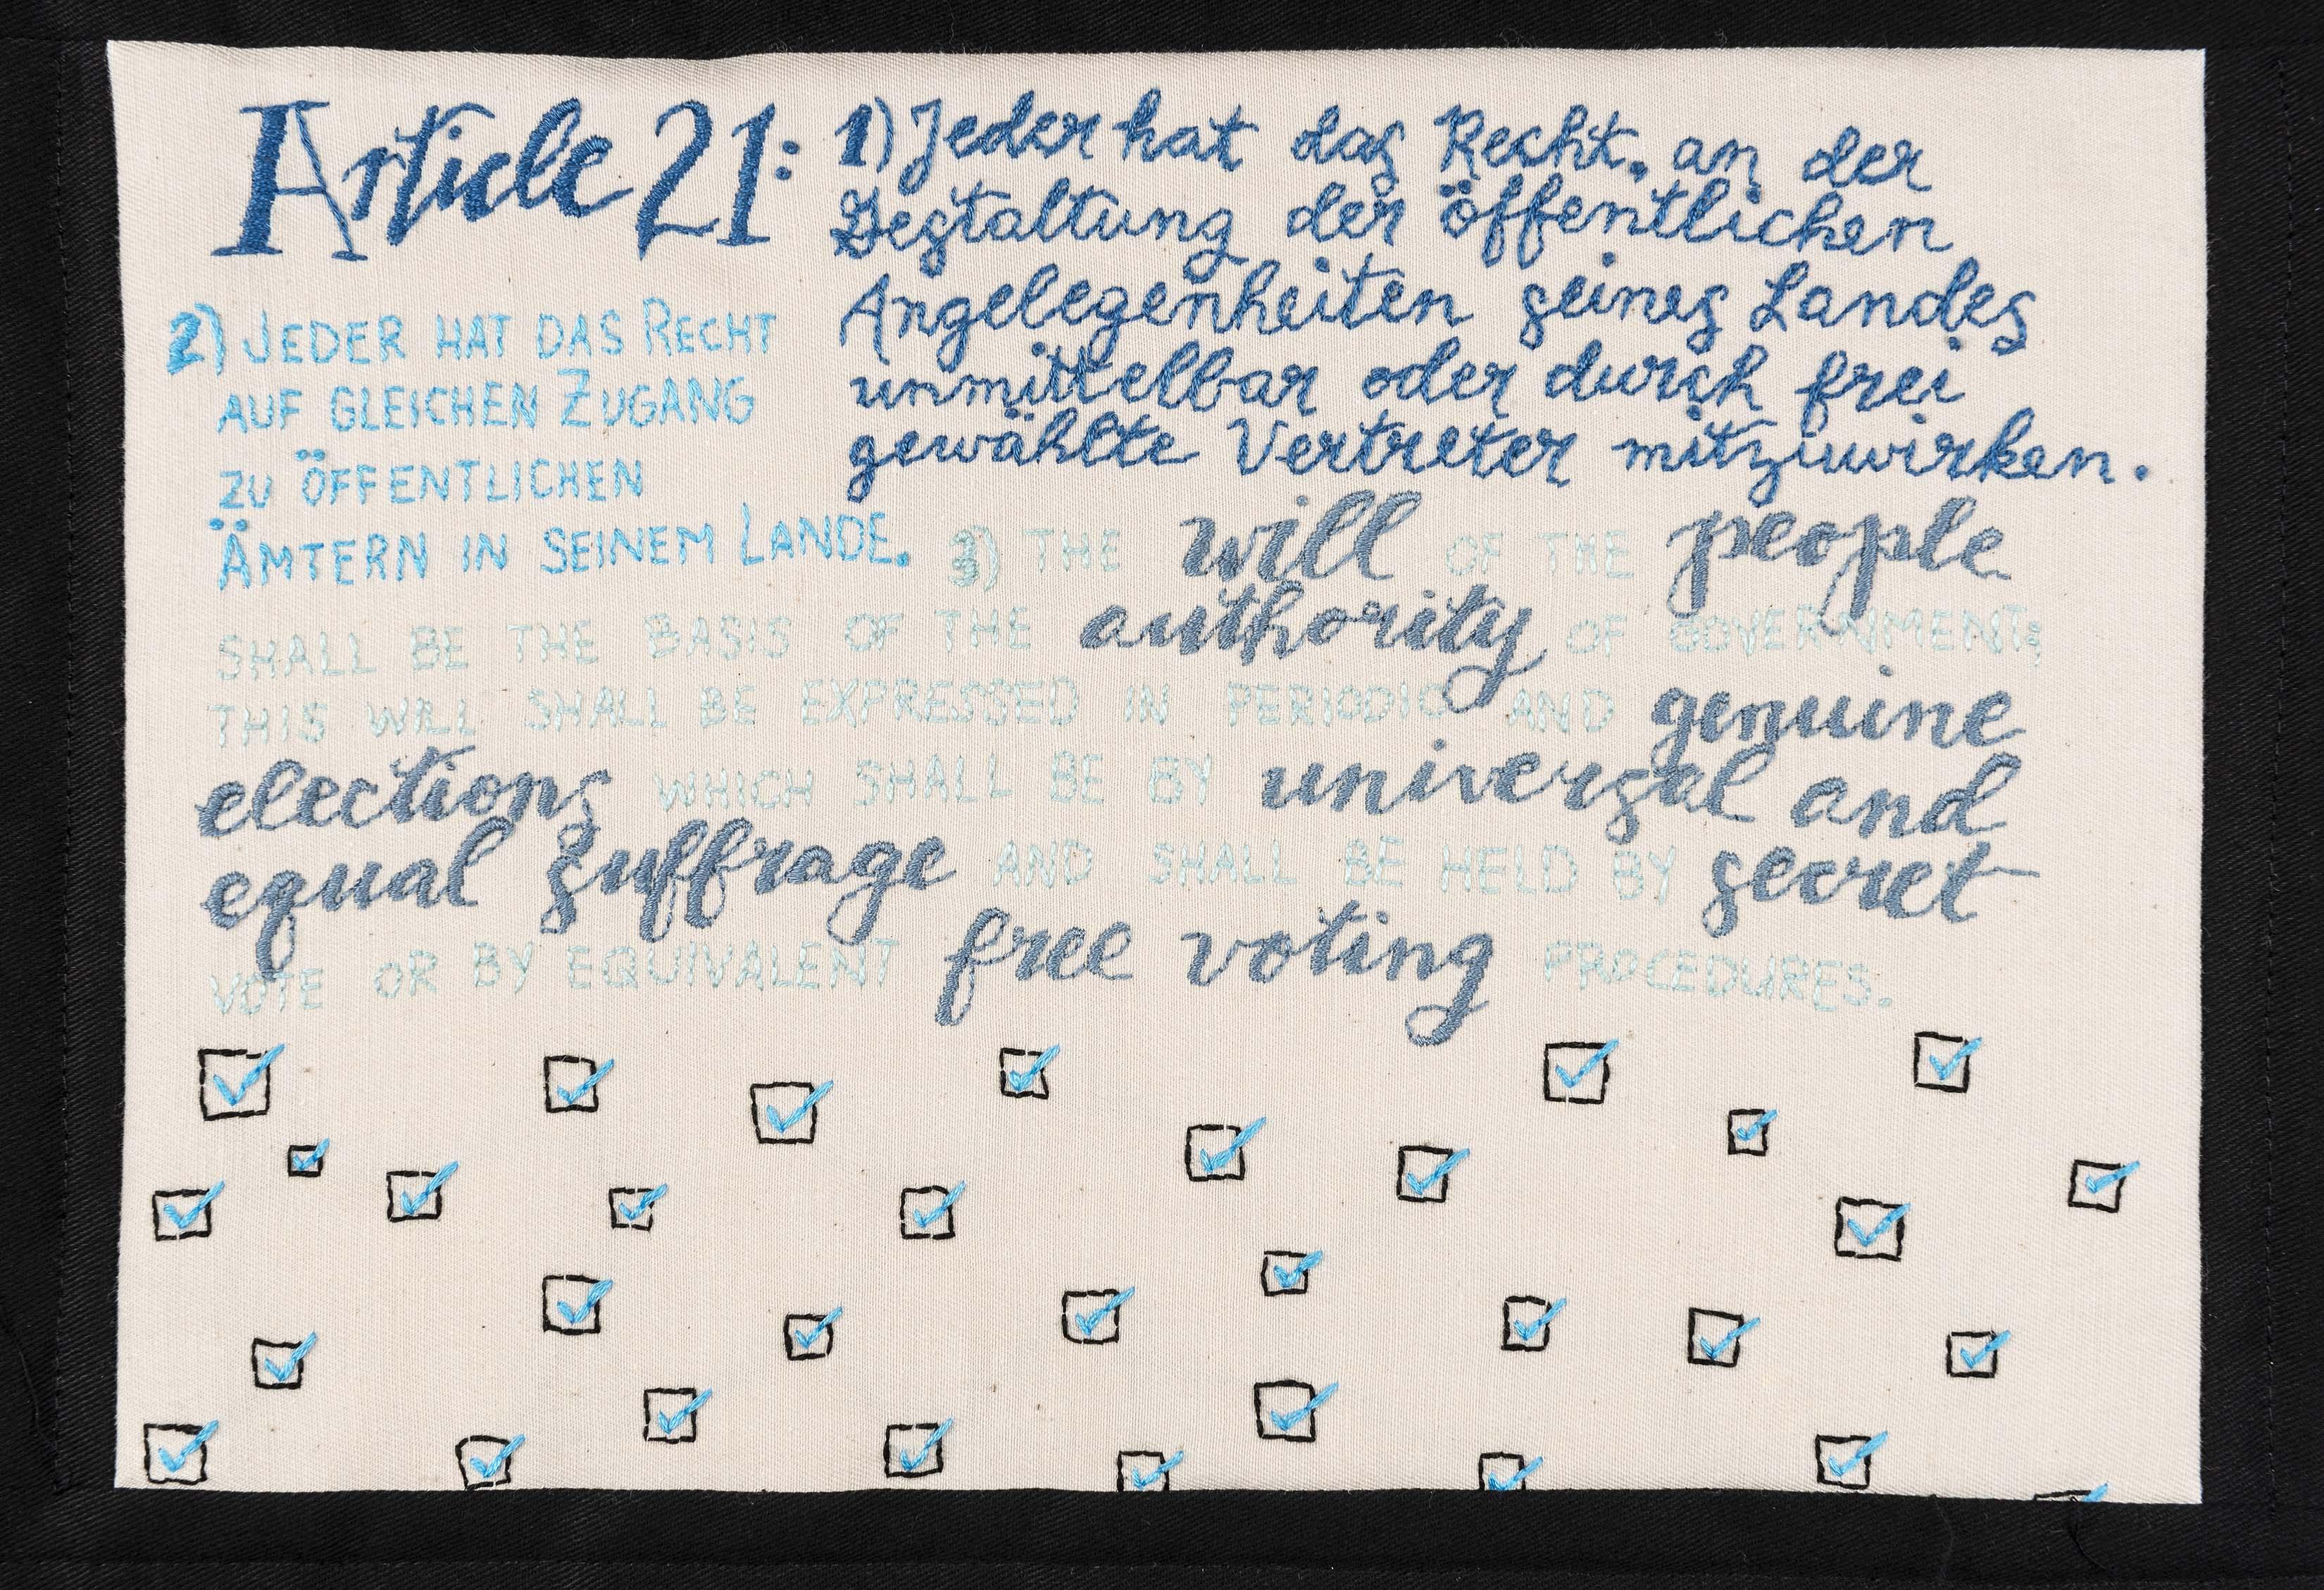 Article 21:
1) Jeder hat das Recht, an der
Gestaltung der öffentlichen
Angelegenheiten seines Landes
unmittelbar oder durch frei
gewählte Vertreter mitzuwirken.
2) JEDER HAT DAS RECHT
AUF GLEICHEN ZUGANG
ZU ÖFFENTLICHEN
ÄMTERN IN SEINEM LANDE.
3) THE will OF THE people
SHALL BE THE BASIS OF THE authority OF GOVERNMENT;
THIS WILL SHALL BE EXPRESSED IN PERIODIC AND genuine
elections WHICH SHALL BE BY universal and
equal suffrage AND SHALL BE HELD BY secret
VOTE OR BY EQUIVALENT free voting PROCEDURES.